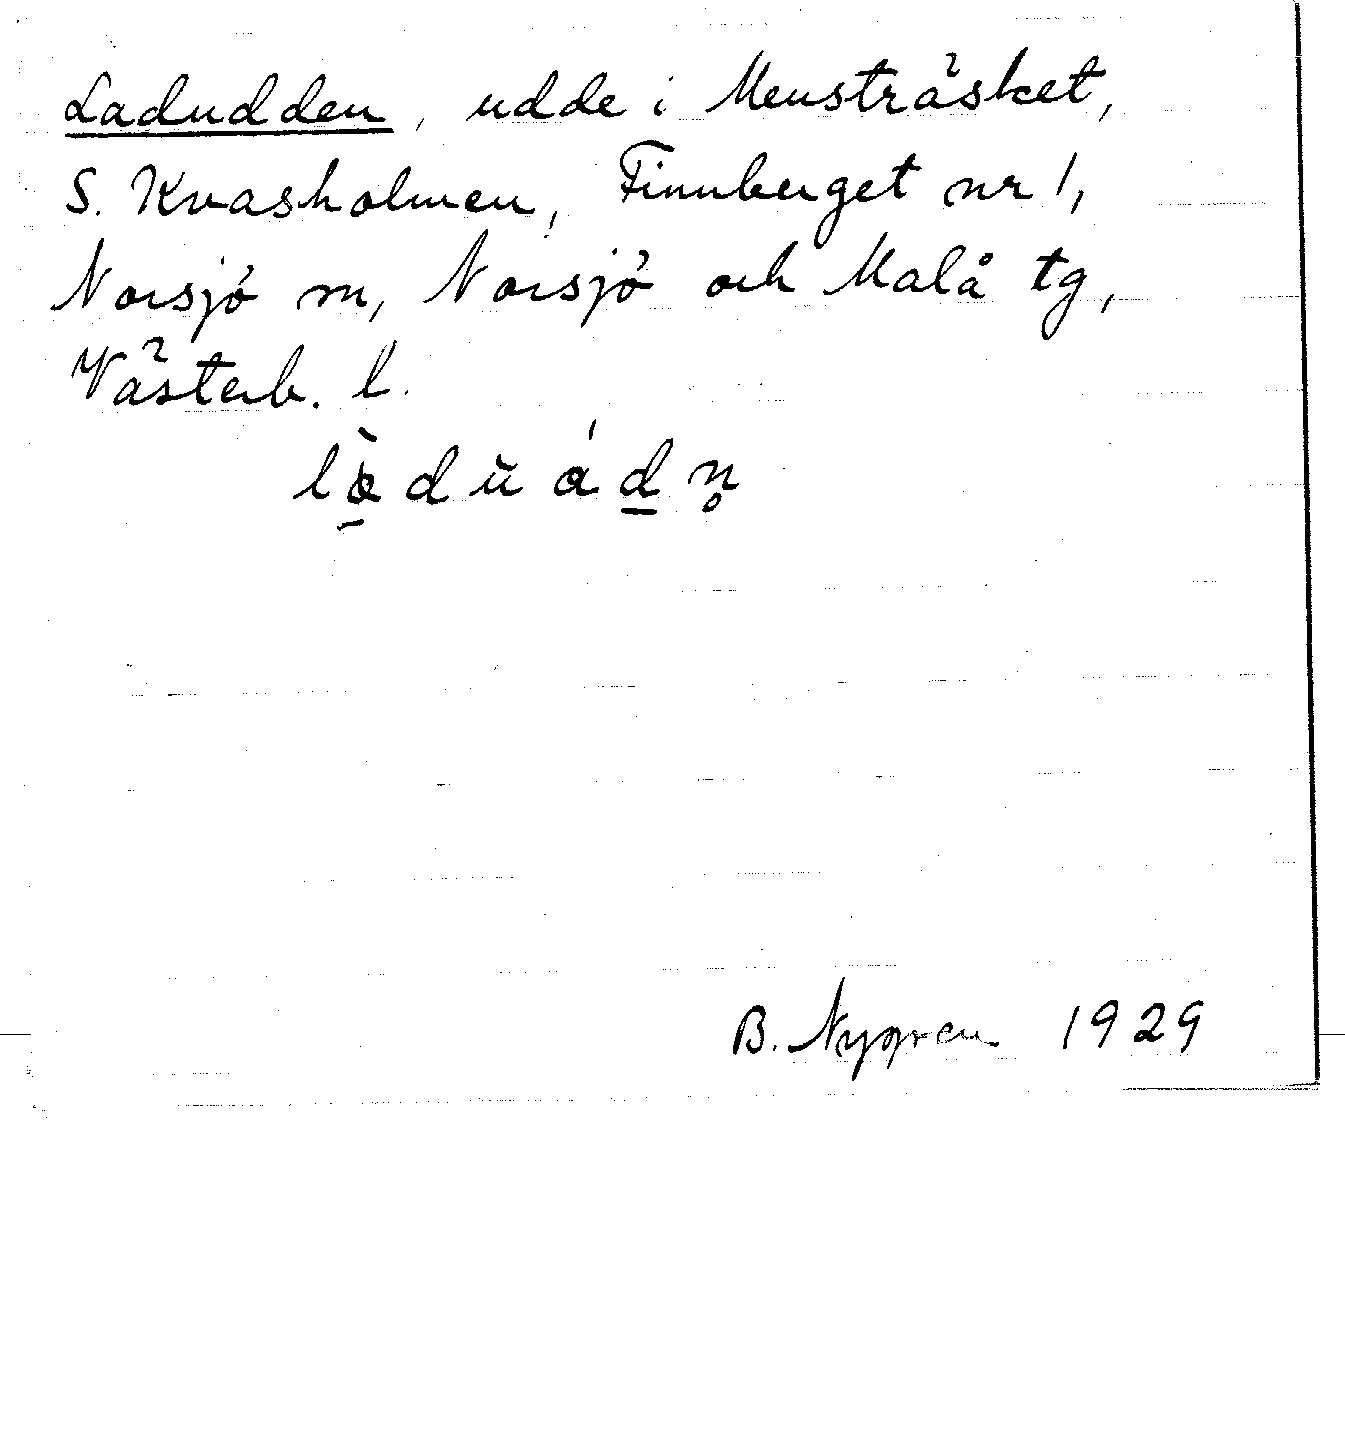 Ladudden, udde i Mensträsket,
S. Kvasholmen, Finnberget nr 1,
Norsjö m, Norsjö och Malå tg,
Västerb. l.
B. Nygren 1929